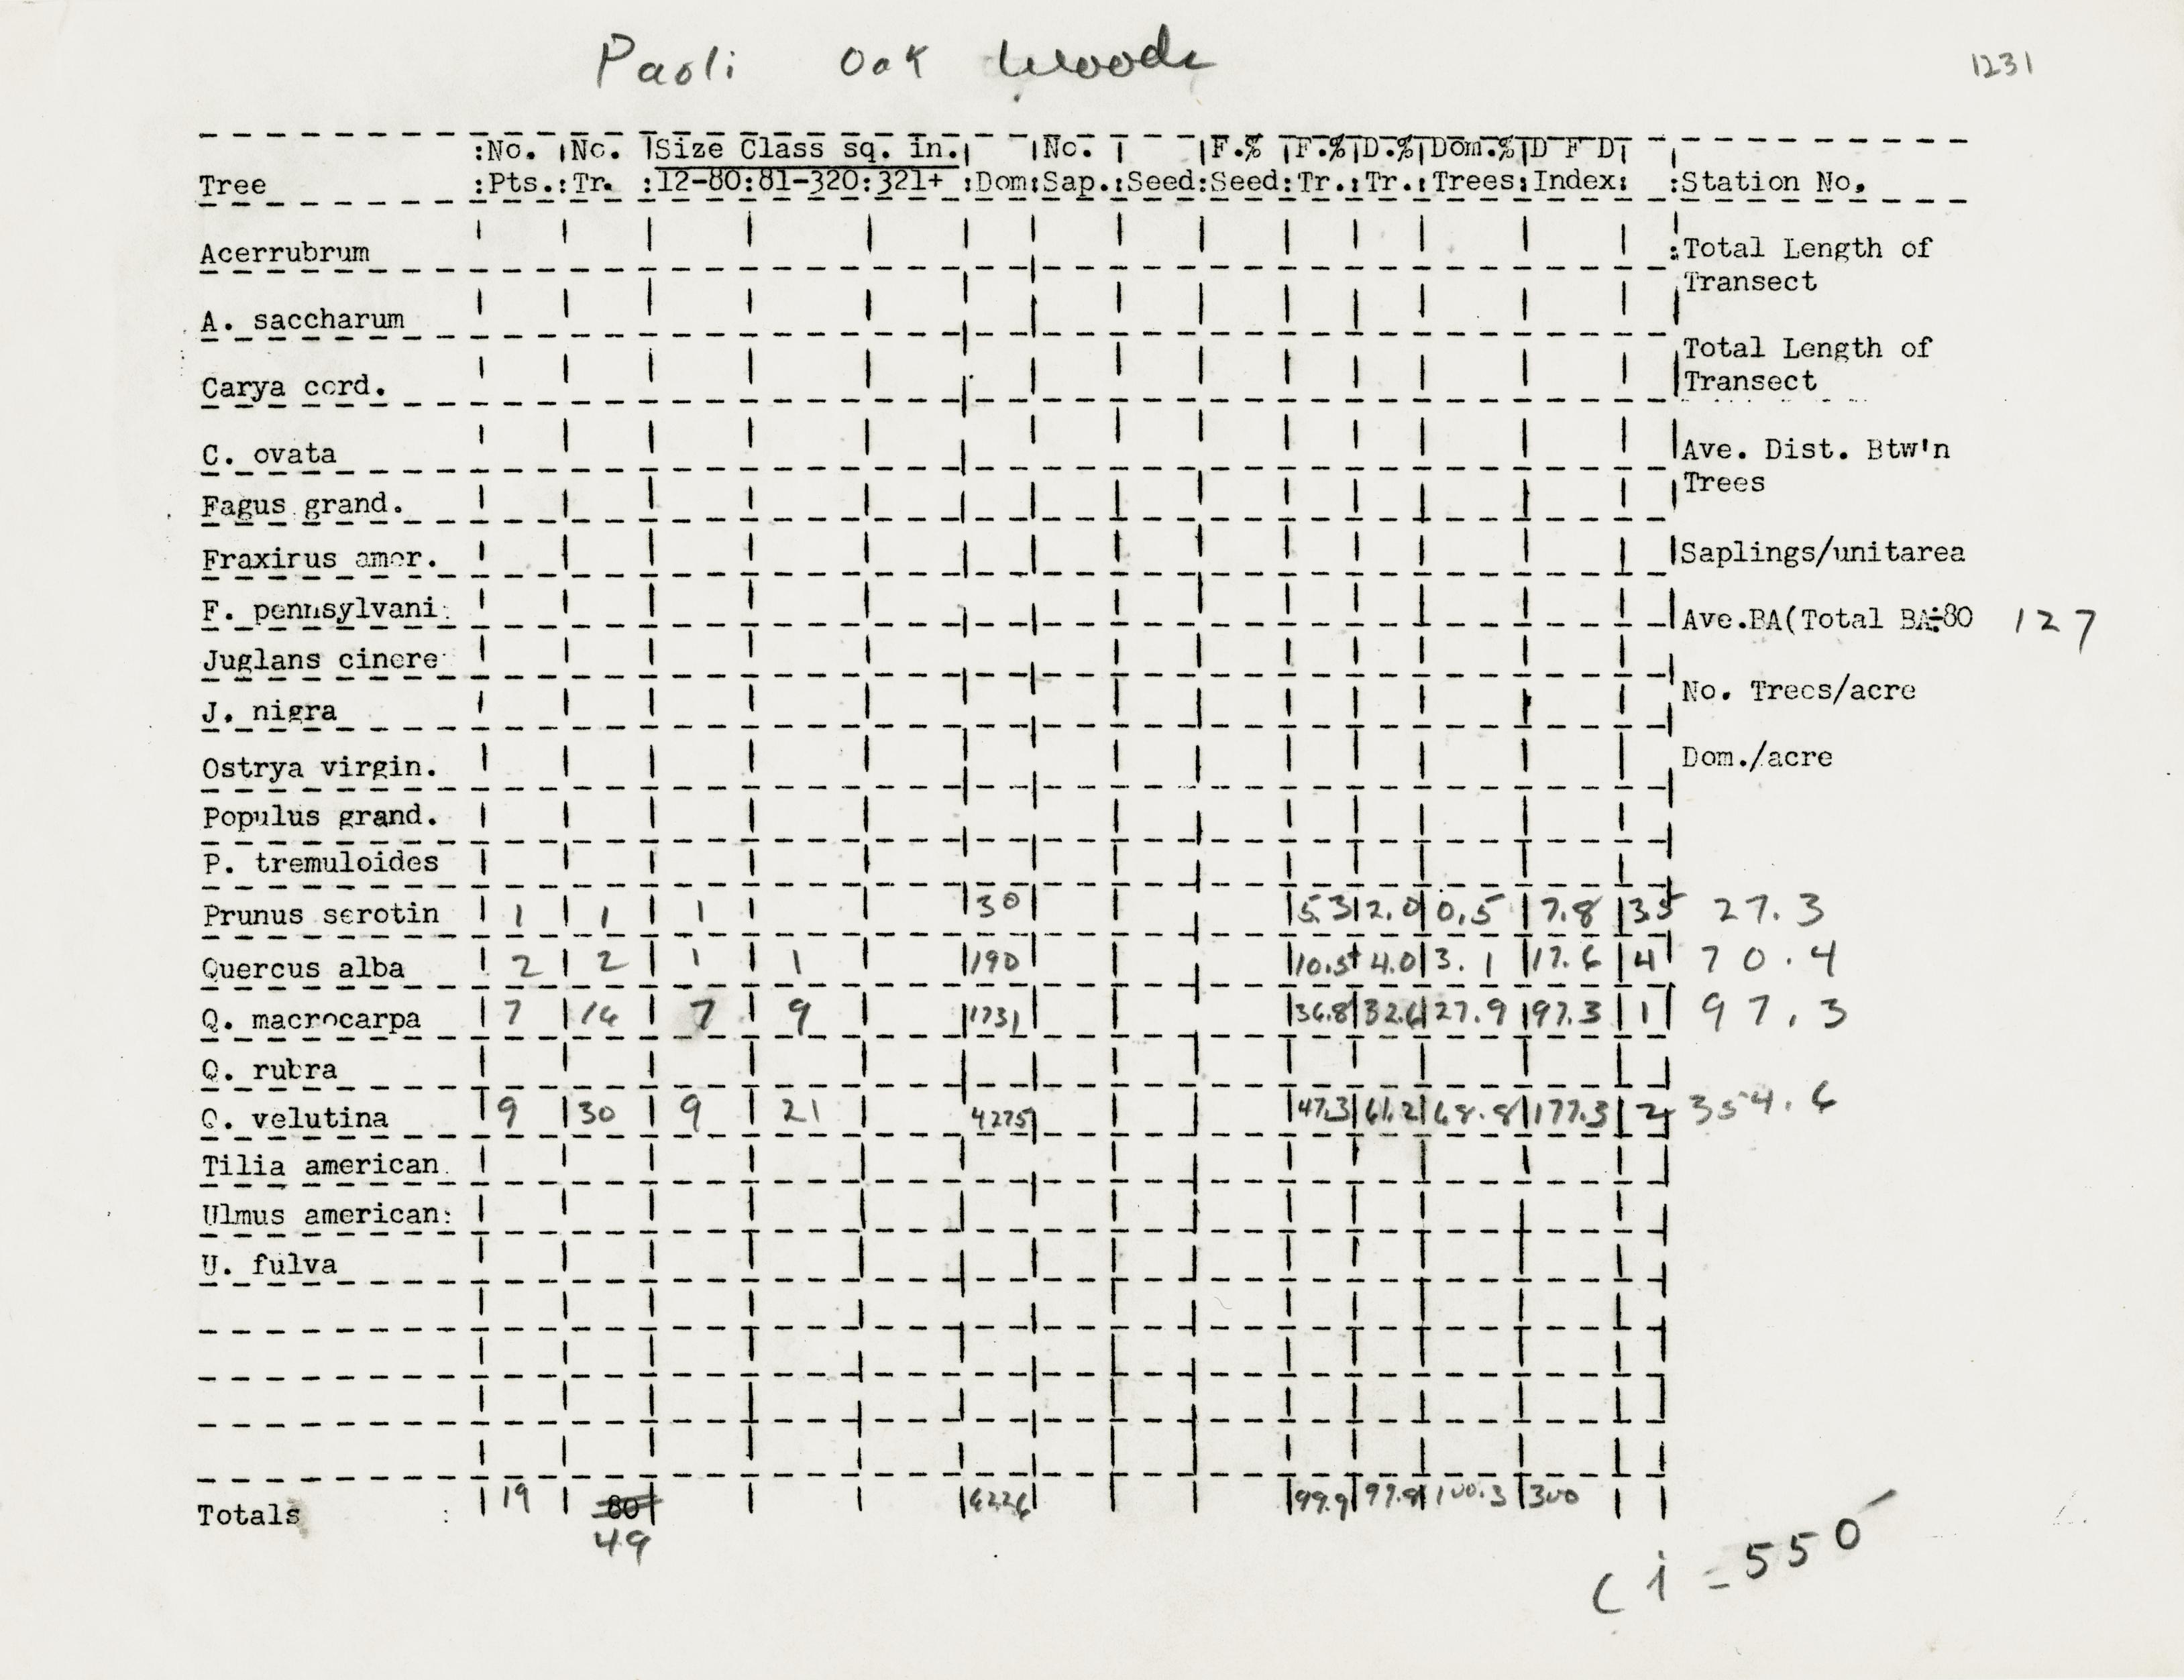 Paoli Oak Woods
1231
:No. No. Size Class sq. in. No. F.% F.% D.% Dom.% D F D
Tree :Pts.:Tr. :12-80:81-320:321+ :Dom:Sap.:Seed:Seed:Tr.:Tr.:Trees:Index: :Station No.
Acerrubrum :Total Length of
Transect
A. saccharum
Total Length of
Carya cord. Transect
C. ovata Ave. Dist. Btw'n
Fagus grand. Trees
Fraxirus amer. Saplings/unitarea
F. pennsylvani: Ave.BA(Total BA÷80 127
Juglans cinere
J. nigra No. Trees/acre
Ostrya virgin. Dom./acre
Populus grand.
P. tremuloides
Prunus serotin 1 1 1 30 5.3 2.0 0.5 7.8 3.5 27.3
Quercus alba 2 2 1 1 190 10.5 4.0 3.1 17.6 4 70.4
Q. macrocarpa 7 16 7 9 1731 36.8 32.6 27.9 97.3 1 97.3
Q. rubra
Q. velutina 9 30 9 21 4275 47.3 61.2 68.8 177.3 2 354.6
Tilia american.
Ulmus american:
U. fulva
Totals : 19 80 6226 99.9 99.8 100.3 300
49
Ci = 550